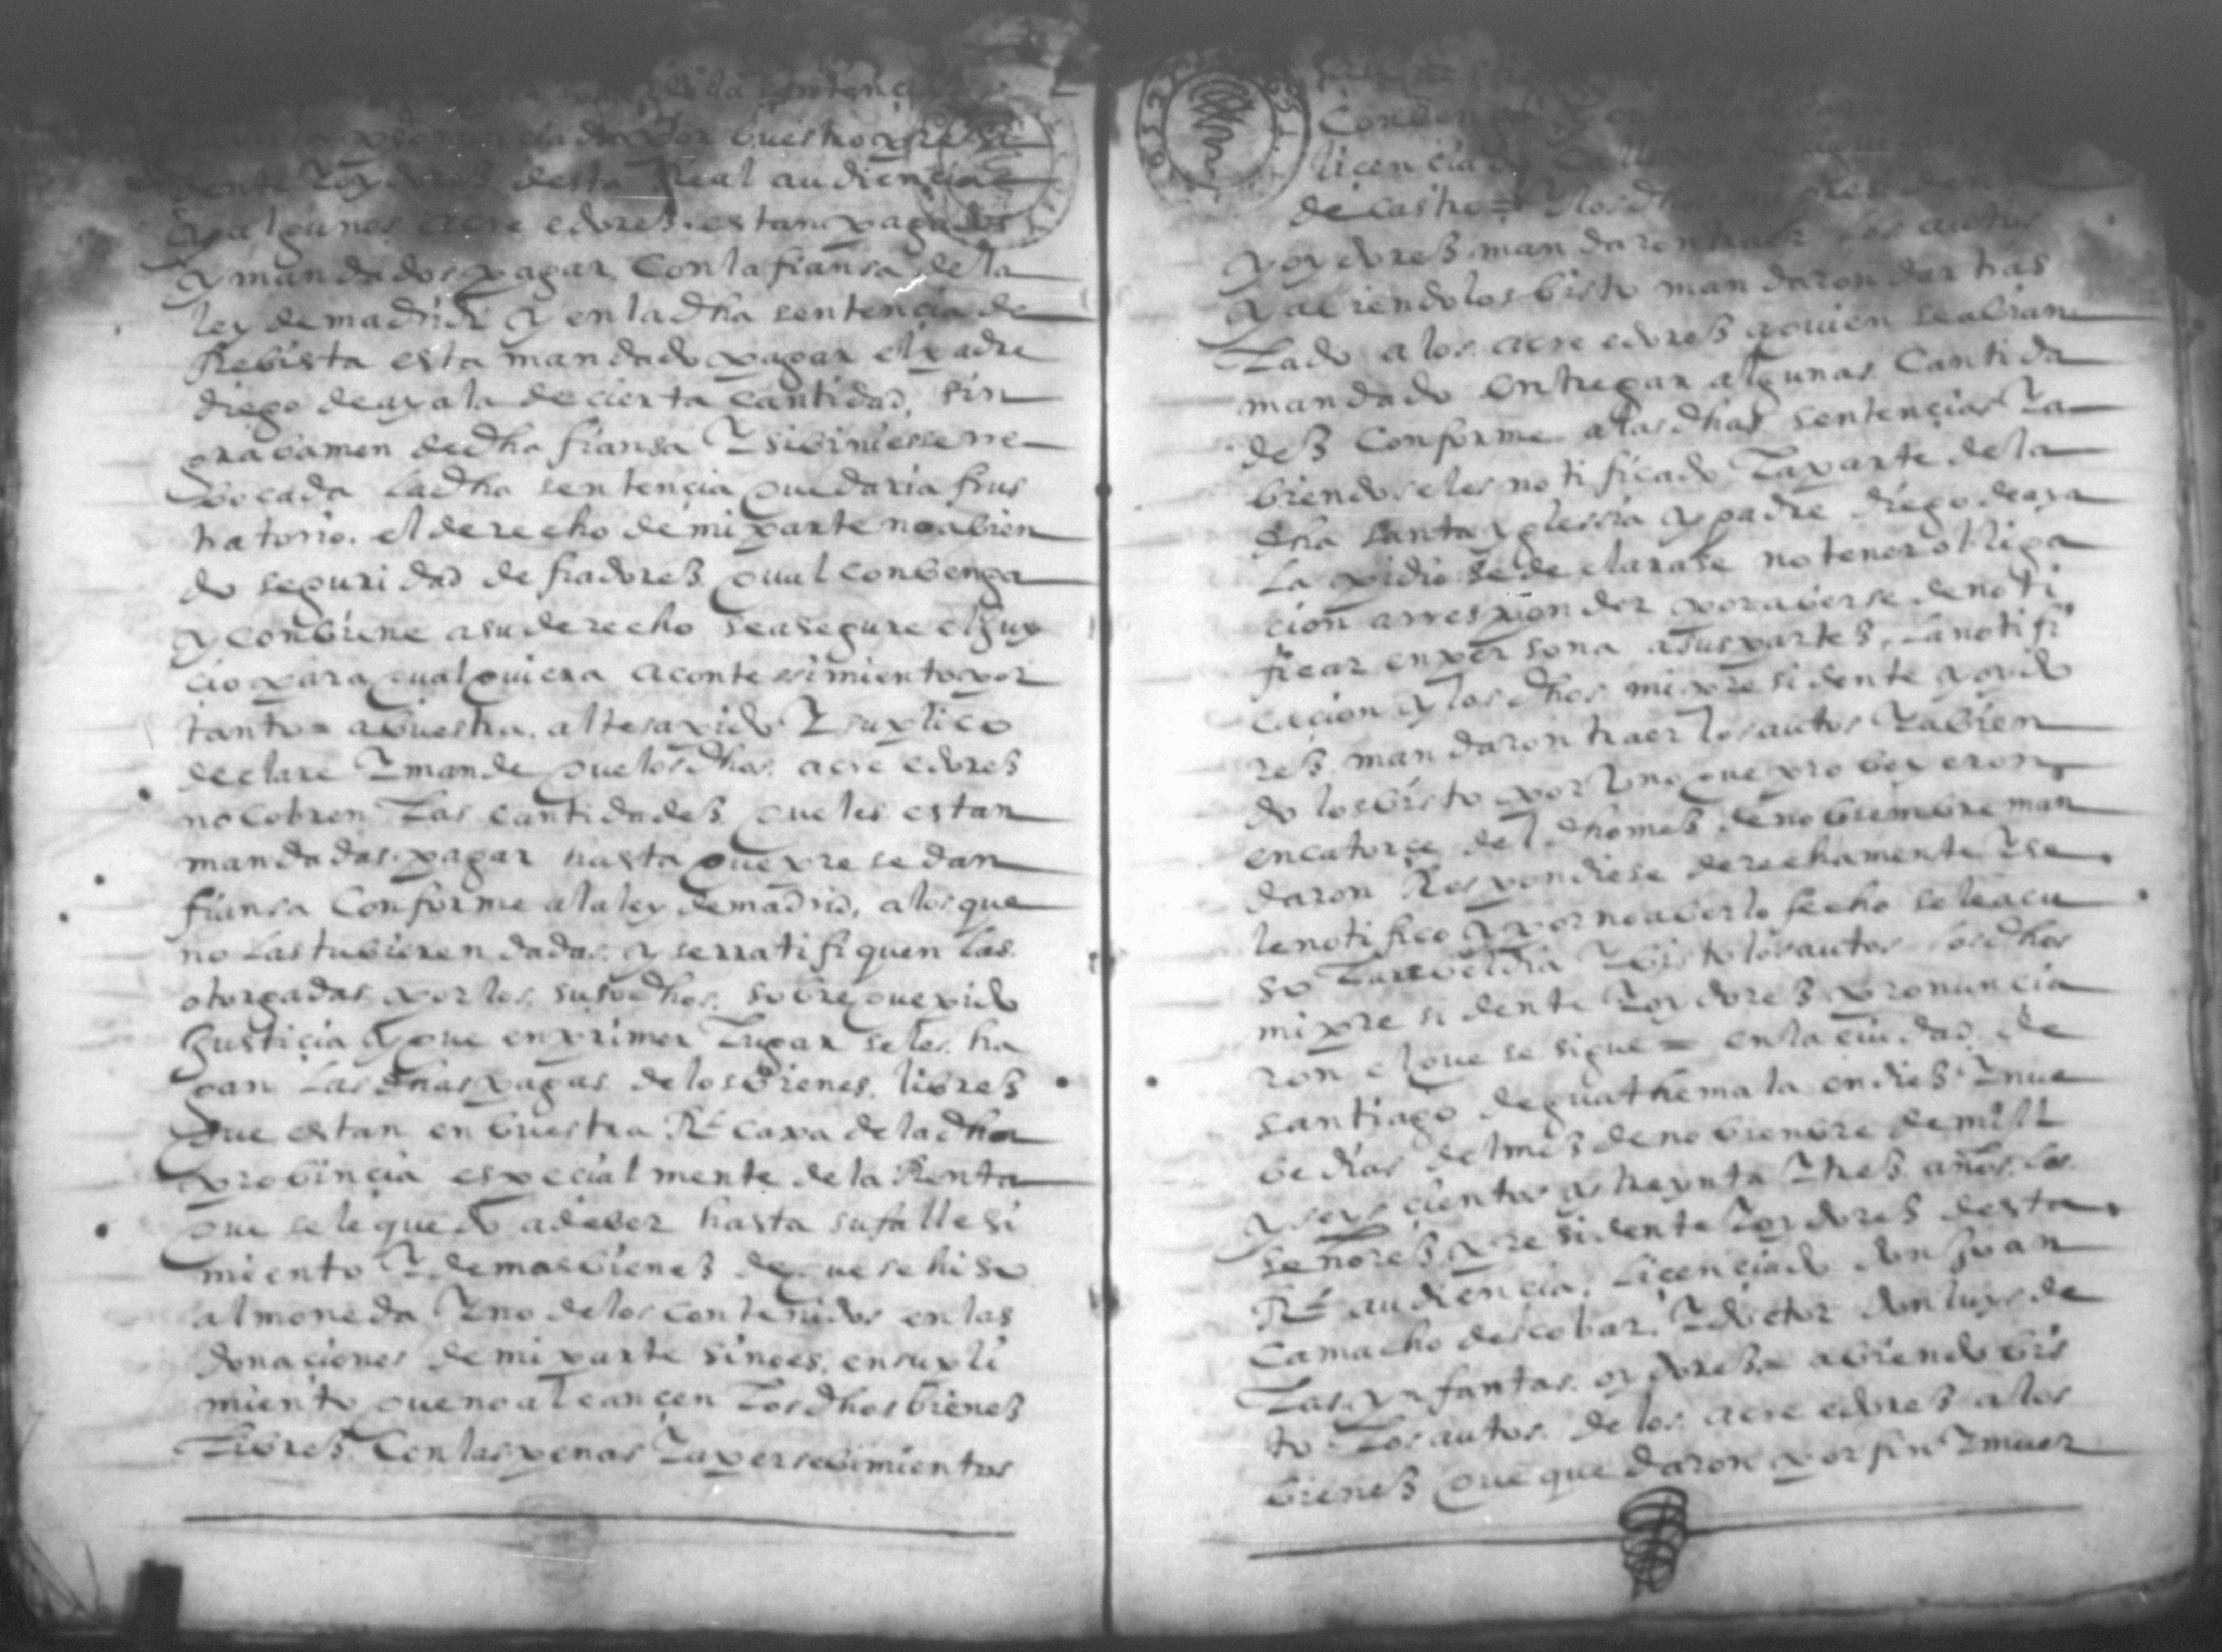 sentencia
pronunciada por buestro presi
dente y oydores desta Real audiencia
y algunos acreedores estan pagados
y mandados pagar con la fiansa de la
ley de madrid y en la dha sentencia de
Rebista esta mandado pagar el padre
diego de ayala de cierta cantidad, sin
gravamen de dha fiansa y si biniesse rre
bocada la dha sentencia quedaria frus
tratorio. el derecho de mi parte no abien
do seguridad de fiadores qual conbenga
y conbiene a su derecho se asegure el juy
cio para qualquiera acontessimiento por
tanto = a buestra altesa pido y suplico
declare y mande que los dhos acreedores
no cobren las cantidades que les estan
mandadas pagar hasta que pre se dan
fiansa conforme a la ley de madrid, a los que
no las tubieren dadas y se rratifiquen las
otorgadas por los susodhos. sobre que pido
Justicia y que en primer lugar se les ha
gan las dhas pagas de los bienes libres
que estan en buestra Rl caxa de la dha
probincia especialmente de la Renta
que se le quedo a deber hasta su fallesi
miento y demas bienes de que se hiso
almoneda y no de los contenidos en las
donaciones de mi parte si no es en supli
miento que no alcancen los dhos bienes
libres. con las penas y apersebimientos
licenciado
de castro = y los dhos mi presidente
y oydores mandaron traer los autos
y abiendolos bisto mandaron dar tras
lado a los acreedores a quien se abian
mandado entregar algunas cantida
des conforme a las dhas sentencias y a
biendoseles notificado la parte de la
dha santa yglessia y padre diego de aya
la pidio se declarase no tener obliga
cion a rresponder por aberse de noti
ficar en persona a sus partes, la notifi
cacion y los dhos mi presidente y oydo
res mandaron traer los autos y abien
dolos bisto por uno que probeyeron
en catorce del dho mes de nobiembre man
daron Respondiese derechamente y se
le notifico y por no aberlo fecho se le acu
so la rebeldia y bisto los autos los dhos
mi presidente y oydores pronuncia
ron el que se sigue = en la ciudad de
santiago de guathemala en dies y nue
be dias del mes de nobienbre de mill
y seyscientos y treynta y tres años. los
señores presidente y oydores desta
Rl audiencia, licenciado don Juan
Camacho descobar, y doctor don luys de
las ynfantas. oydores = abiendo bis
to los autos de los acreedores a los
bienes que quedaron por fin y muer